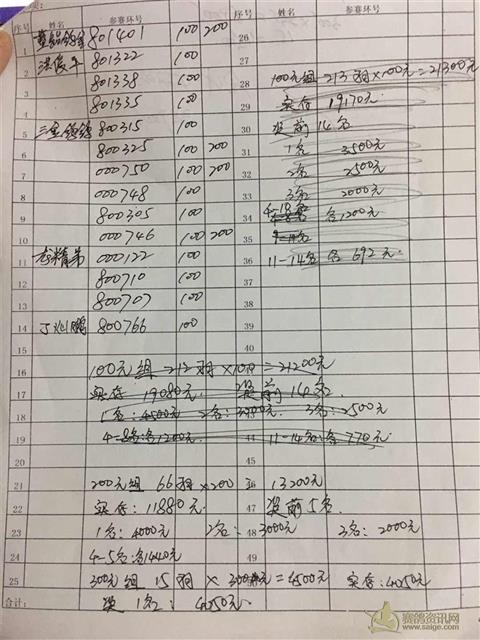 序号 姓名 参赛环号 序号 姓名 参赛环号
1 801401 100 200 26
2 801322 100 27
3 801338 100 28 100元组 213羽×100元=21300元
4 801335 100 29 实存 19170元
5 800315 100 30 奖前14名
6 800325 100 200 31 1名 3500元
7 000750 100 200 32 2名 2500元
8 000748 100 33 3名 2000元
9 800305 100 34 4-10名 各1200元
10 000746 100 200 35
11 000122 100 36 11-14名 各 692元.
12 800710 100 37
13 800707 100 38
14 800766 100 39
15 40
16 100元组 212羽×100=21200元
17 实存 19080元 奖前14名
18 1名:4500元 2名: 3名:2500元
19 4-8名:各1200元 44 11-14名:各770元.
20 45
21 200元组 66羽×200 = 13200元
22 实存:11880元. 47 奖前5名.
23 1名:4000元 2名: 48 3000元 3名:2000元
24 4-5名:各1440元 49
25 300元组 15羽 × 300元=4500元 实存:4050元
合计: 奖1名: 4050元.
赛鸽资讯网
www.saige.com